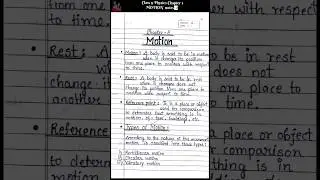 Class 9 Physics Chapter 1
MOTION notes
Chapter - 1
Motion
Motion : A body is said to be in motion
when it changes its position
from one place to another with respect
to time.
Rest : A body is said to be in rest
when it does not
change its position from one place to
another with respect to time.
Reference point : It is a place or object
used for comparison
to determine that something is in
motion, eg - tree, buildings, etc.
Types of Motion :
According to the nature of the movement
motion is classified into three types :
i) Rectilinear motion
ii) Circular motion
iii) Vibratory motion
er with respect
to time.
Rest :
when
change its
another
Reference
to determ
motion
in rest
does not
place to
to time.
a place or object
comparison
is in
etc.